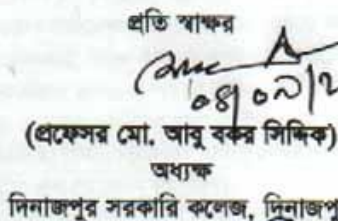 প্রতি স্বাক্ষর
০৪/০৯/২
(প্রফেসর মো. আবু বকর সিদ্দিক)
অধ্যক্ষ
দিনাজপুর সরকারি কলেজ, দিনাজপু